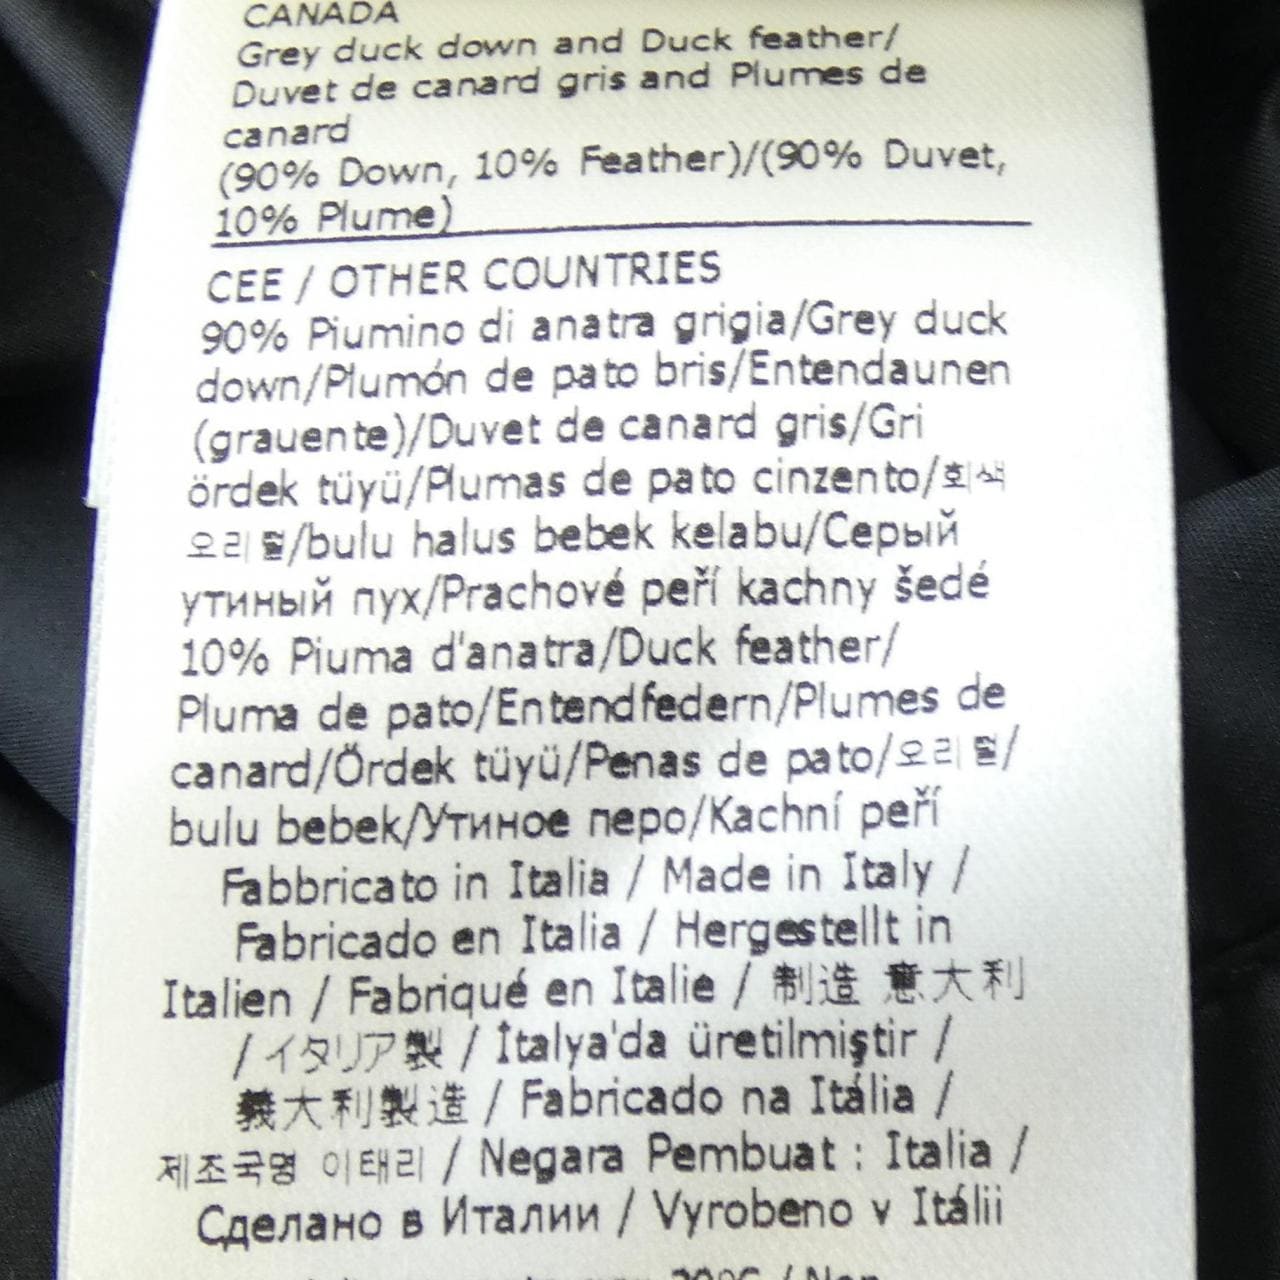 CANADA
Grey duck down and Duck feather/
Duvet de canard gris and Plumes de
canard
(90% Down, 10% Feather)/(90% Duvet,
10% Plume)
CEE / OTHER COUNTRIES
90% Piumino di anatra grigia/Grey duck
down/Plumón de pato bris/Entendaunen
(grauente)/Duvet de canard gris/Gri
ördek tüyü/Plumas de pato cinzento/회색
오리털/bulu halus bebek kelabu/Серый
утиный пух/Prachové peří kachny šedé
10% Piuma d'anatra/Duck feather/
Pluma de pato/Entendfedern/Plumes de
canard/Ördek tüyü/Penas de pato/오리털/
bulu bebek/Утиное перо/Kachní peří
Fabbricato in Italia / Made in Italy /
Fabricado en Italia / Hergestellt in
Italien / Fabriqué en Italie / 制造 意大利
/ イタリア製 / İtalya'da üretilmiştir /
義大利製造 / Fabricado na Itália /
제조국명 이태리 / Negara Pembuat : Italia /
Сделано в Италии / Vyrobeno v Itálii